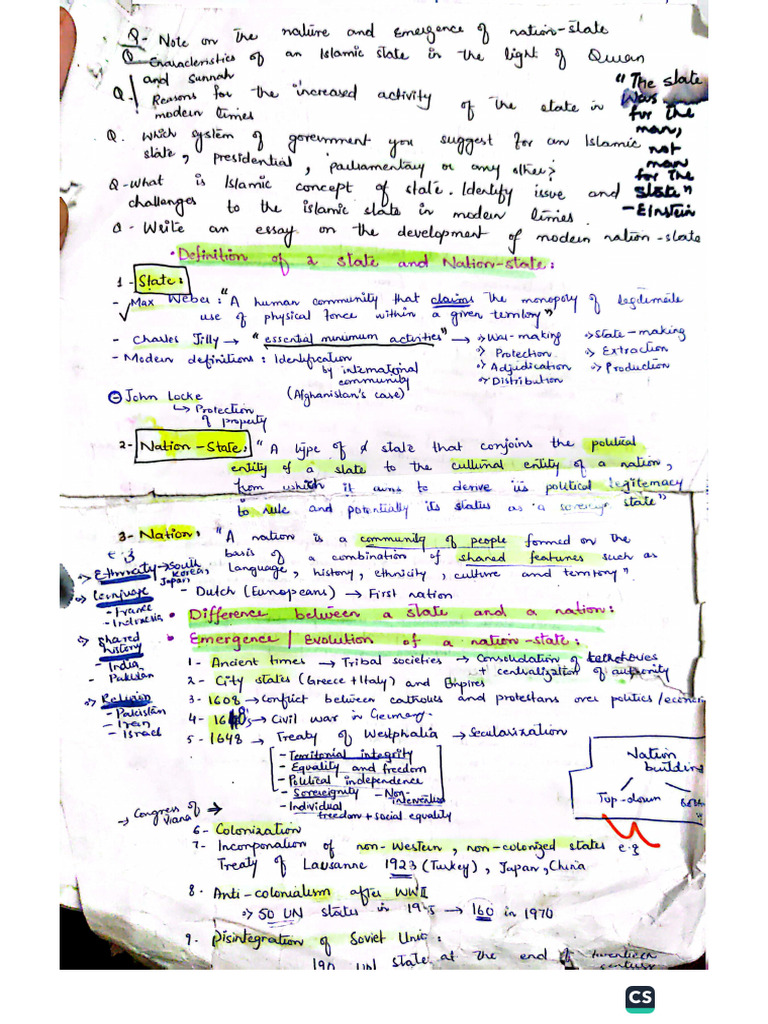 Q- Note on the nature and emergence of nation-state
Q. Characteristics of an Islamic state in the light of Quran
and Sunnah
Q. Reasons for the increased activity of the state in
modern times
"The state
was
for the
man,
not
man
for the
state"
- Einstein
Q. Which system of government you suggest for an Islamic
state, presidential, parliamentary or any other?
Q-What is Islamic concept of state. Identify issue and
challenges to the islamic state in modern times.
Q- Write an essay on the development of modern nation-state
• Definition of a state and Nation-state:
1- State:
- Max Weber: "A human community that claims the monopoly of legitimate
use of physical force within a given territory"
- Charles Tilly → "essential minimum activities" → War-making State-making
Protection Extraction
Adjudication Production
Distribution
- Modern definitions: Identification
by international
community
(Afghanistan's case)
John Locke
↳ Protection
of property
2- Nation-State: "A type of state that conjoins the political
entity of a state to the cultural entity of a nation,
from which it aims to derive its political legitimacy
to rule and potentially its status as a sovereign state"
3- Nation: "A nation is a community of people formed on the
basis of a combination of shared features such as
language, history, ethnicity, culture and territory".
- Dutch (Europeans) → First nation
e.g
Ethnicity → South
Korea,
Japan
Language
- France
- Indonesia
Shared
history
- India
- Pakistan
Religion
- Pakistan
- Iran
- Israel
• Difference between a state and a nation:
• Emergence / Evolution of a nation-state:
1- Ancient times → Tribal societies → Consolidation of territories
+ centralization of authority
2- City states (Greece + Italy) and Empires
3- 1608 → Conflict between catholics and protestans over politics /
4- → Civil war in Germany.
5- 1648 → Treaty of Westphalia → Secularization
- Territorial integrity
- Equality and freedom
- Political independence
- Sovereignity - Non-
intervention
- Individual
freedom + social equality
Nation
building
Top-down
→ Congress of
Viana →
6- Colonization
7- Incorporation of non-Western, non-colonized states e.g
Treaty of Lausanne 1923 (Turkey), Japan, China
8. Anti-colonialism after WWII
50 UN states in 1945 → 160 in 1970
9. Disintegration of Soviet Union:
190 UN state at the end of twentieth
century
CS